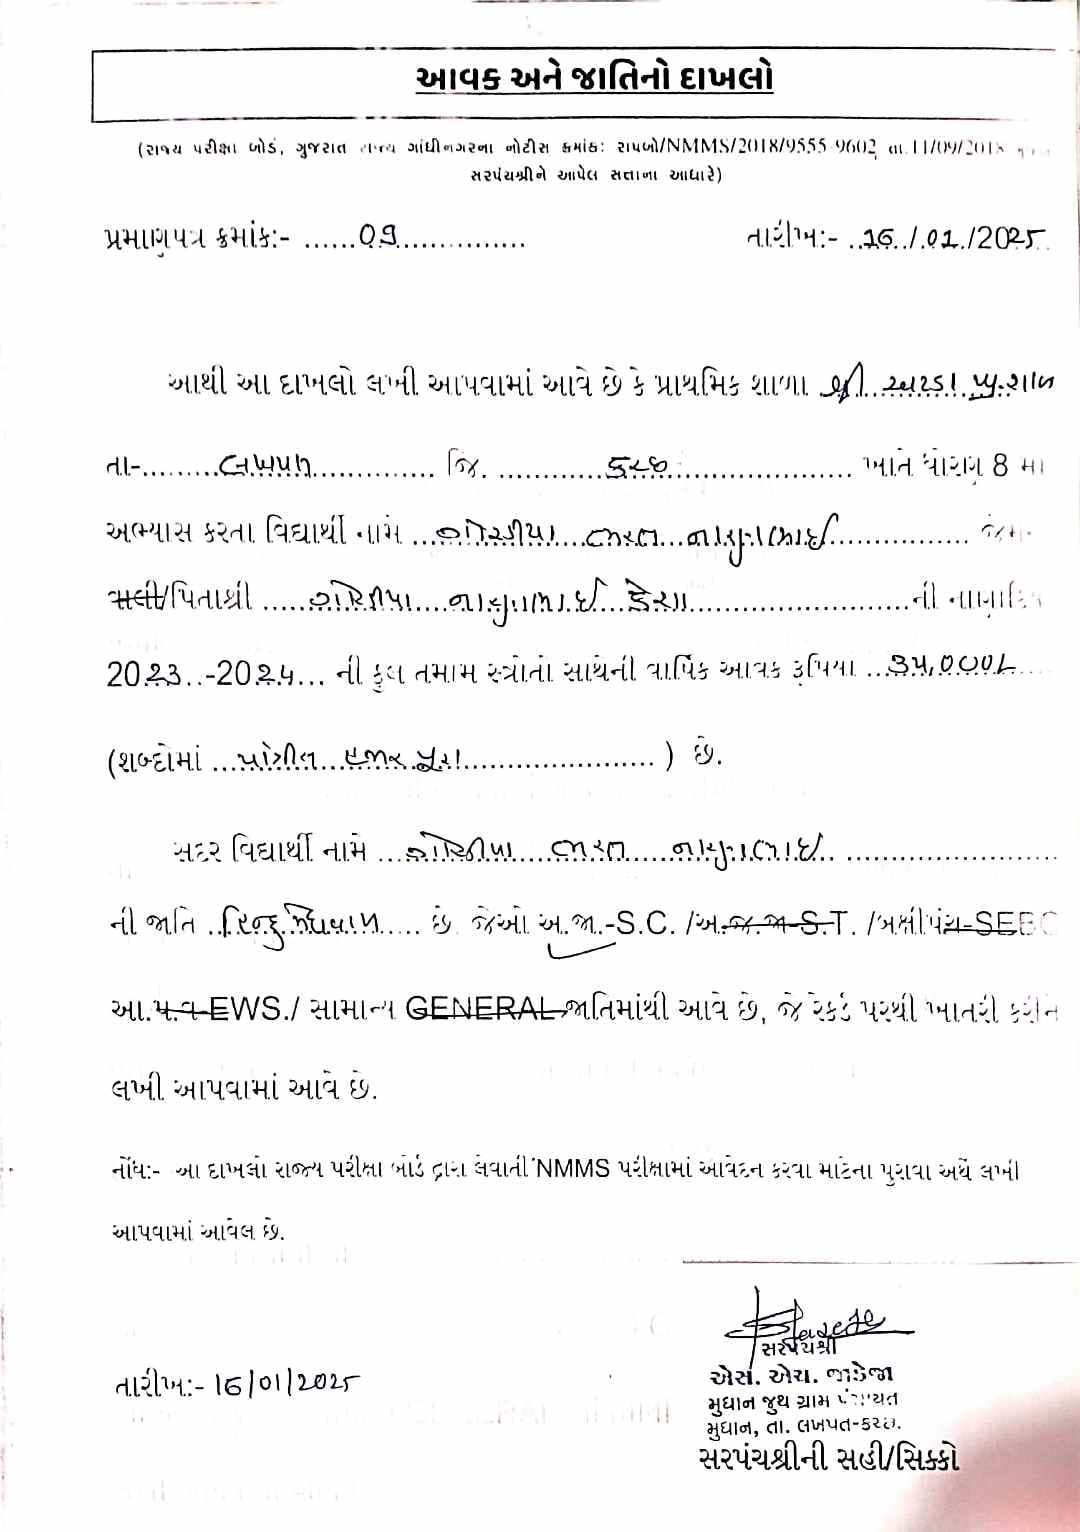 આવક અને જાતિનો દાખલો
(રાજ્ય પરીક્ષા બોર્ડ, ગુજરાત રાજ્ય ગાંધીનગરના નોટીસ ક્રમાંક: રાપબો/NMMS/2018/9555-9602 તા.11/09/2018
સરપંચશ્રીને આપેલ સત્તાના આધારે)
પ્રમાણપત્ર ક્રમાંક:- ......09...............
તારીખ:- ..16../.01./2025.
આથી આ દાખલો લખી આપવામાં આવે છે કે પ્રાથમિક શાળા શ્રી
તા-.........લખપત.............. જિ. ............કચ્છ.................. ખાતે ધોરણ 8 મા
અભ્યાસ કરતા વિદ્યાર્થી નામ ... ભરત
વાલી/પિતાશ્રી ..... ની નાણાકિય
2023..-2024... ની કુલ તમામ સ્ત્રોતો સાથેની વાર્ષિક આવક રૂપિયા ...35,000/-
(શબ્દોમાં ...પાંત્રીસ...હજાર.પુરા......................) છે.
સદર વિદ્યાર્થી નામે ... ભરત
ની જાતિ ..હિન્દુ મેઘવાળ..... છે. જેઓ અ.જા.-S.C. /અ.જ.જા-S.T. /બક્ષીપંચ-SEBC
આ.પ.વ-EWS./ સામાન્ય GENERAL જાતિમાંથી આવે છે, જે રેકર્ડ પરથી ખાતરી કરીને
લખી આપવામાં આવે છે.
નોંધ:- આ દાખલો રાજ્ય પરીક્ષા બોર્ડ દ્વારા લેવાતી NMMS પરીક્ષામાં આવેદન કરવા માટેના પુરાવા અર્થે લખી
આપવામાં આવેલ છે.
તારીખ:- 16/01/2025
સરપંચશ્રી
એસ. એચ. જાડેજા
મુધાન જુથ ગ્રામ પંચાયત
મુધાન, તા. લખપત-કચ્છ.
સરપંચશ્રીની સહી/સિક્કો